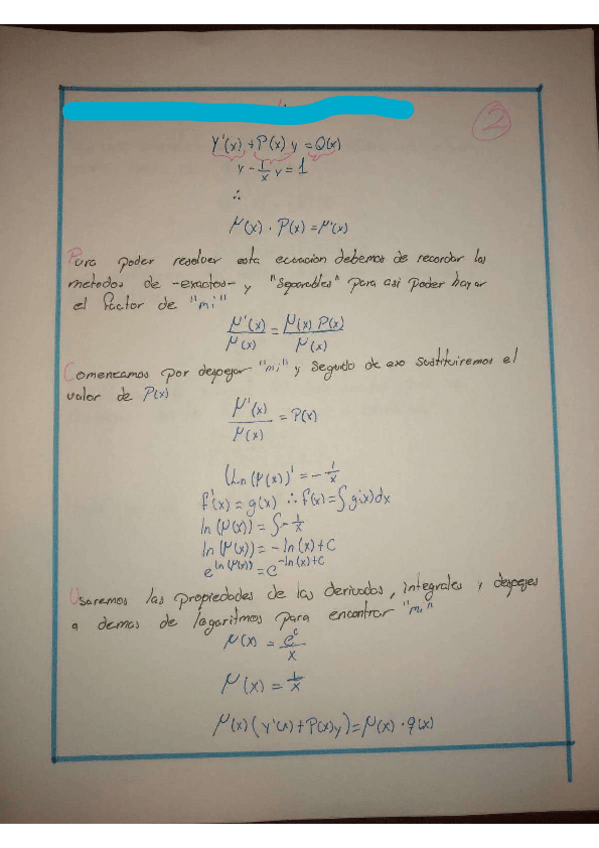 2
Y'(x) + P(x) y = Q(x)
y - 1/x y = 1
∴
μ(x) · P(x) = μ'(x)
Para poder resolver esta ecuacion debemos de recordar los
metodos de -exactos- y "separables" para asi poder hayar
el factor de "mi"
μ'(x)/μ(x) = μ(x) P(x)/μ(x)
Comencamos por despejar "mi" y seguido de eso sustituiremos el
valor de P(x)
μ'(x)/μ(x) = P(x)
(Ln (μ(x))' = - 1/x
f'(x) = g(x) ∴ f(x) = ∫ g(x) dx
ln (μ(x)) = ∫ - 1/x
ln (μ(x)) = - ln(x) + C
e^ln(μ(x)) = e^-ln(x)+C
Usaremos las propiedades de las derivadas, integrales y despejes
a demas de logaritmos para encontrar "mi"
μ(x) = e^c/x
μ(x) = 1/x
μ(x) (y'(x) + P(x)y) = μ(x) · q(x)